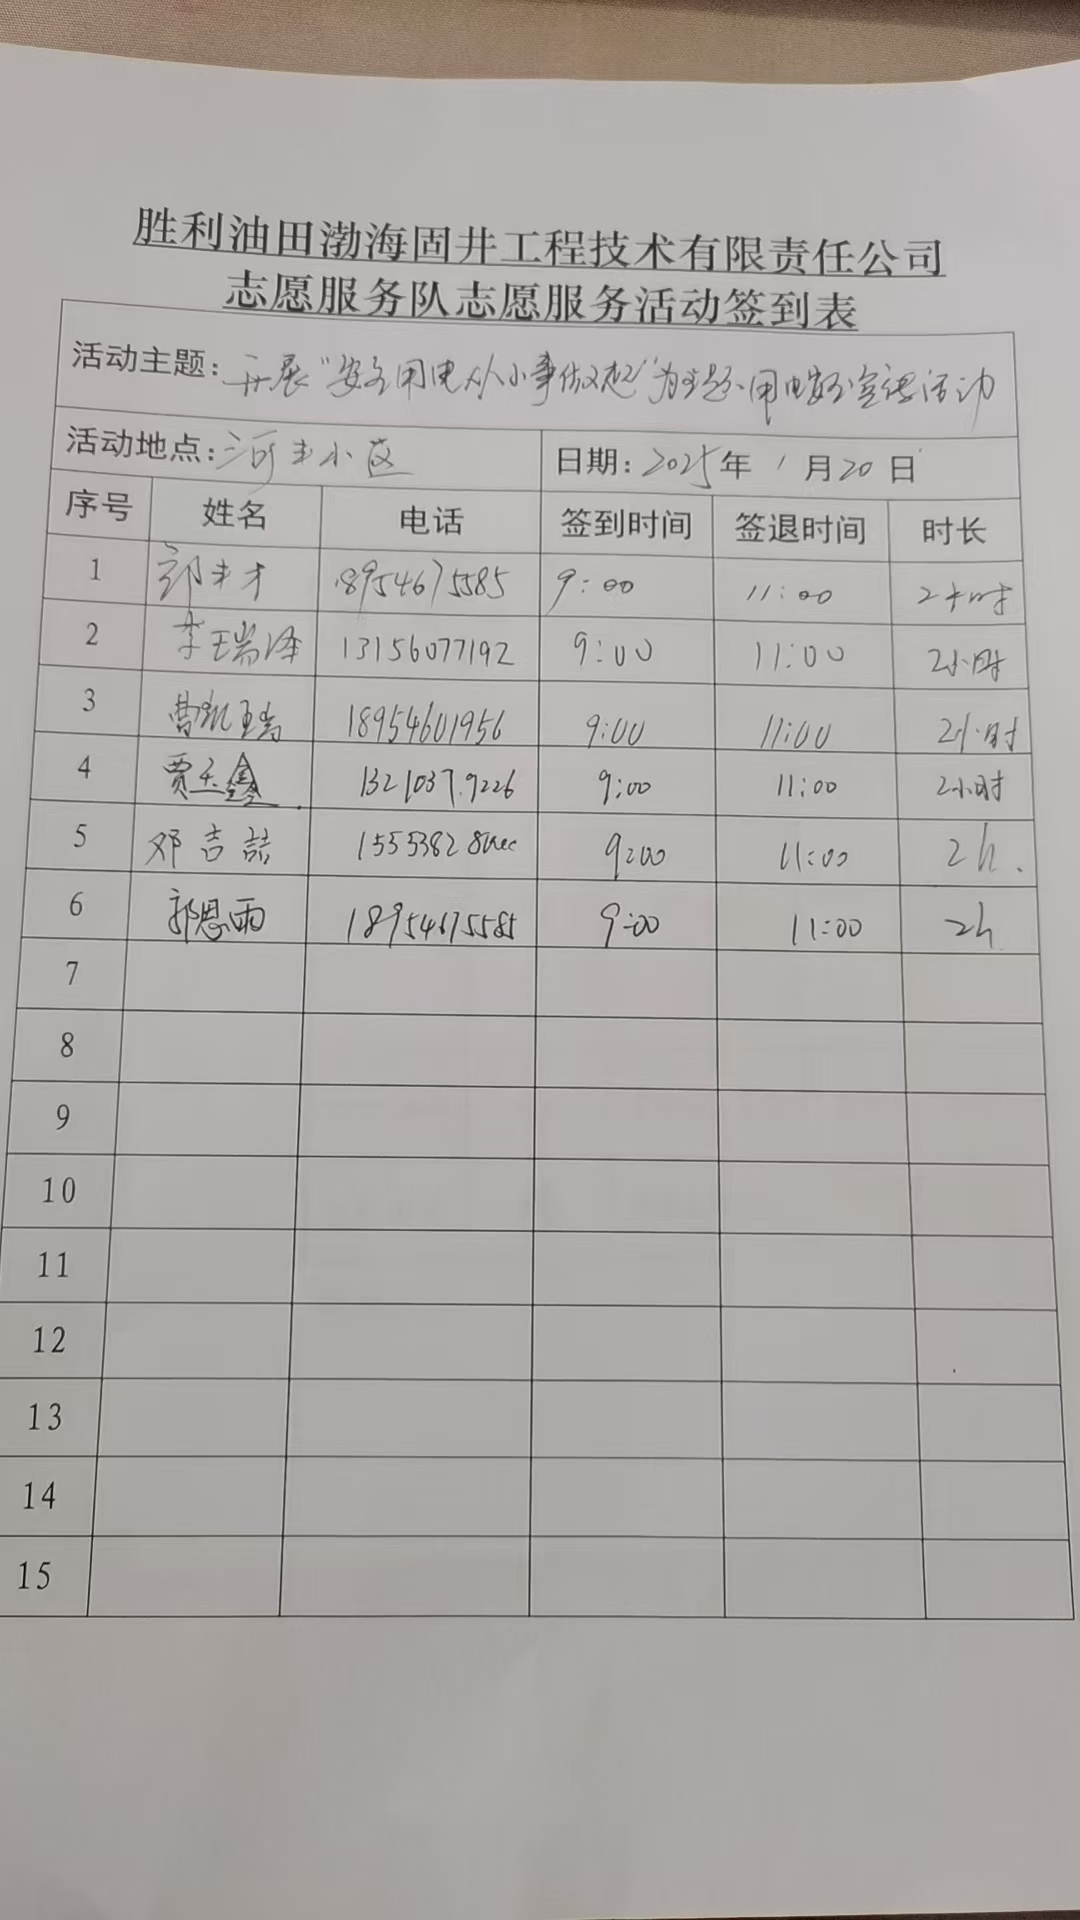 胜利油田渤海固井工程技术有限责任公司
志愿服务队志愿服务活动签到表
活动主题: 开展"安全用电从小事做起"为主题用电安全宣传活动
活动地点: 河丰小区 日期: 2025年 1月20日
序号 姓名 电话 签到时间 签退时间 时长
1 郭丰才 18954675585 9:00 11:00 2小时
2 李瑞泽 13156077192 9:00 11:00 2小时
3 曹凯瑞 18954601956 9:00 11:00 2小时
4 贾玉鑫 13210379226 9:00 11:00 2小时
5 邓吉喆 9:00 11:00 2h.
6 郭恩雨 18954675585 9:00 11:00 2h
7
8
9
10
11
12
13
14
15